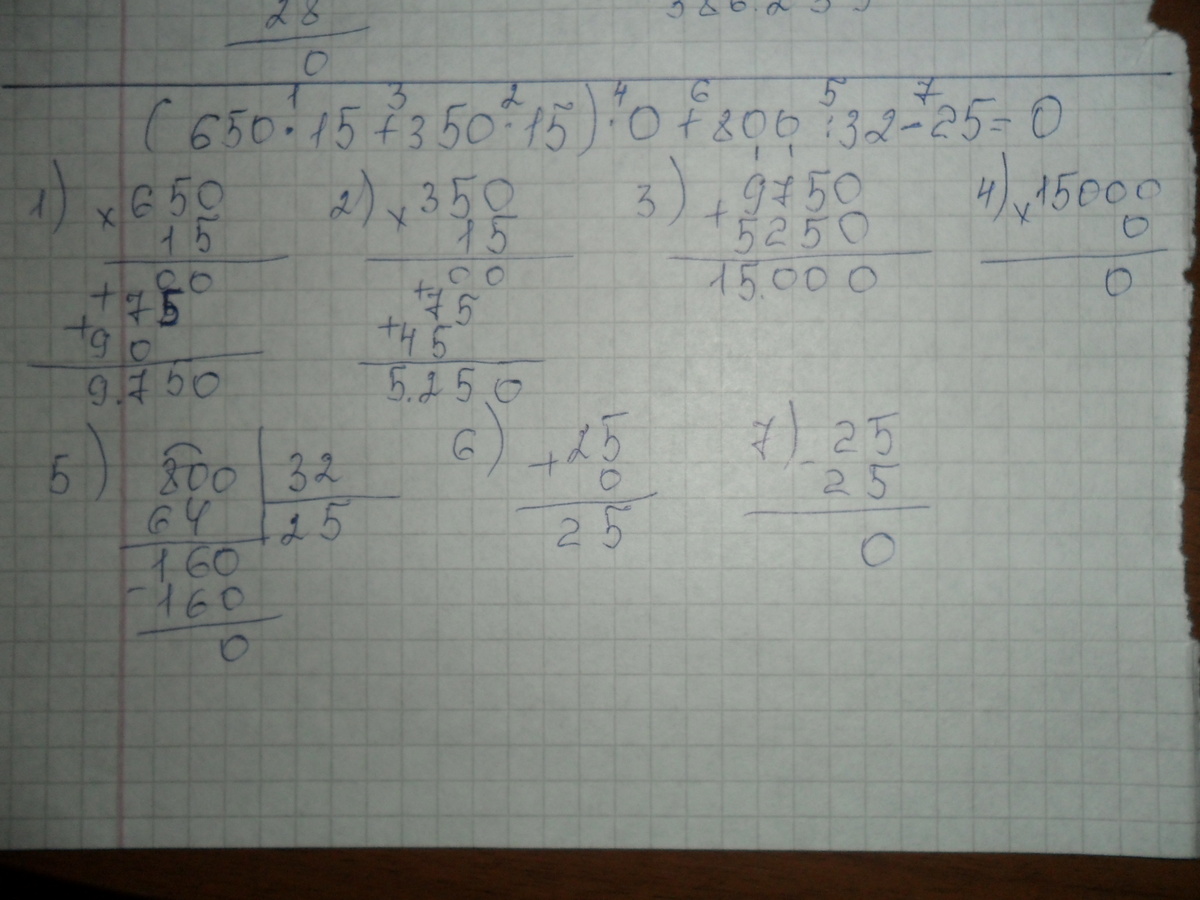 28
0
(650·15+350·15)·0+800:32-25=0
1 3 2 4 6 5 7
1) × 650
15
+ 00
+ 75
90
9.750
2) × 350
15
+ 00
+ 75
45
5.250
3) + 9750
5250
15.000
4) × 15000
0
0
5) 800 | 32
64 25
160
- 160
0
6) + 25
0
25
7) - 25
25
0